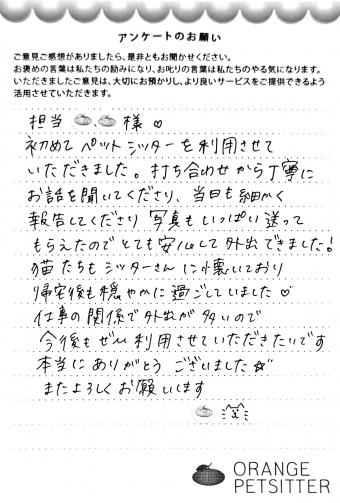 アンケートのお願い
ご意見ご感想がありましたら、是非ともお聞かせください。
お褒めの言葉は私たちの励みになり、お叱りの言葉は私たちのやる気になります。
いただきましたご意見は、大切にお預かりし、より良いサービスをご提供できるよう
活用させていただきます。
担当 様♡
初めてペットシッターを利用させて
いただきました。打ち合わせから丁寧に
お話を聞いてくださり、当日も細かく
報告してくださり写真もいっぱい送って
もらえたのでとても安心して外出できました!
猫たちもシッターさんに懐いており
帰宅後も穏やかに過ごしていました♡
仕事の関係で外出が多いので
今後もぜひ利用させていただきたいです
本当にありがとうございました☆
またよろしくお願いします
ORANGE
PETSITTER